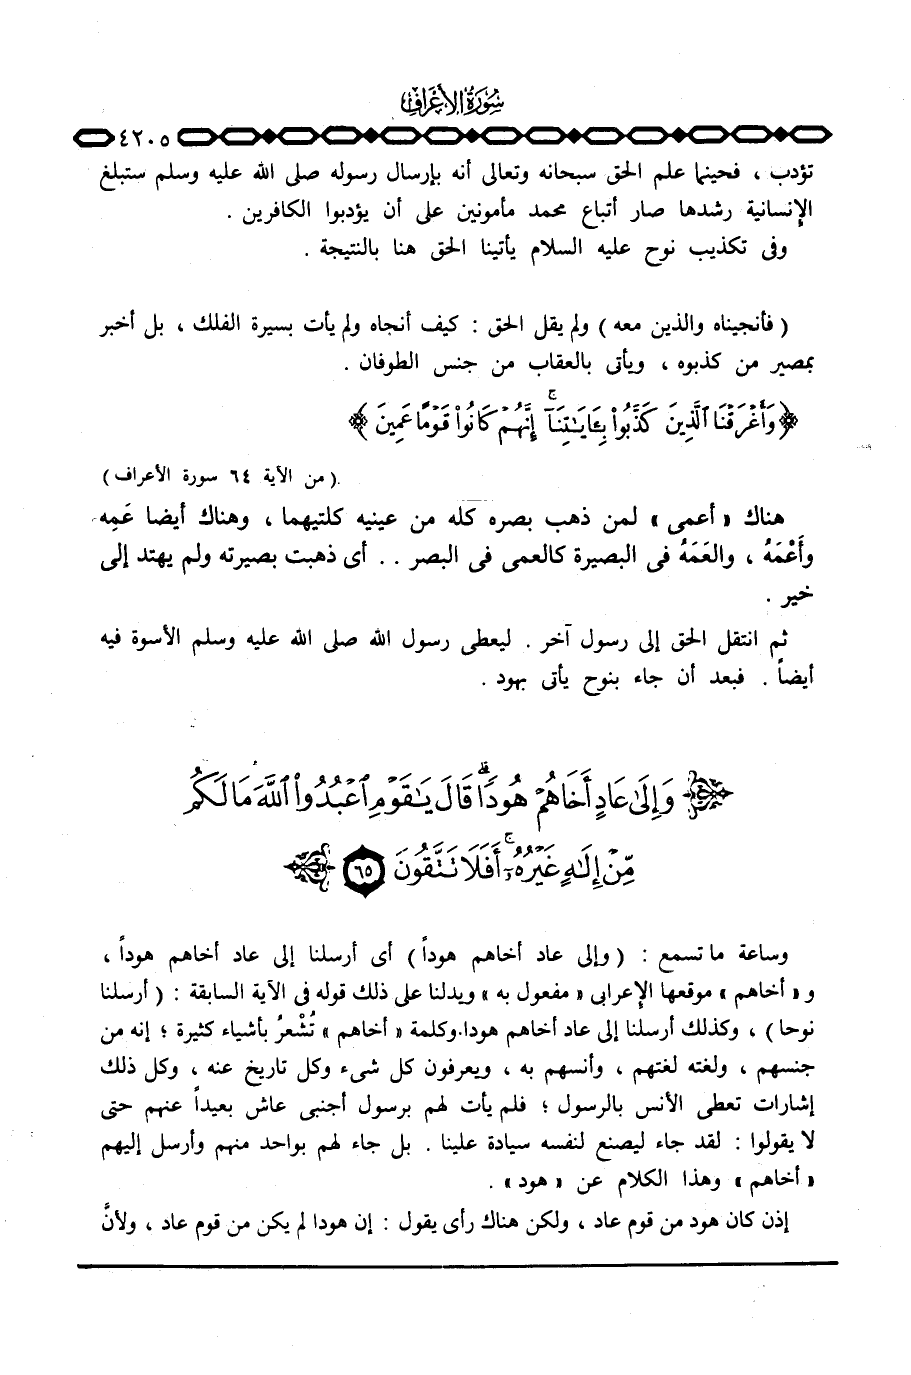 سُورَةُ الأَعْرَافِ
٤٢٠٥
تؤدب ، فحينما علم الحق سبحانه وتعالى أنه بإرسال رسوله صلى الله عليه وسلم ستبلغ
الإنسانية رشدها صار أتباع محمد مأمونين على أن يؤدبوا الكافرين .
وفى تكذيب نوح عليه السلام يأتينا الحق هنا بالنتيجة .
( فأنجيناه والذين معه ) ولم يقل الحق : كيف أنجاه ولم يأت بسيرة الفلك ، بل أخبر
بمصير من كذبوه ، ويأتى بالعقاب من جنس الطوفان .
﴿ وَأَغْرَقْنَا الَّذِينَ كَذَّبُوا۟ بِـَٔايَـٰتِنَآ ۚ إِنَّهُمْ كَانُوا۟ قَوْمًا عَمِينَ ﴾
( من الآية ٦٤ سورة الأعراف )
هناك « أعمى » لمن ذهب بصره كله من عينيه كلتيهما ، وهناك أيضا عَمِه
وأَعْمَهُ ، والعَمَهُ فى البصيرة كالعمى فى البصر . . أى ذهبت بصيرته ولم يهتد إلى
خير .
ثم انتقل الحق إلى رسول آخر . ليعطى رسول الله صلى الله عليه وسلم الأسوة فيه
أيضاً . فبعد أن جاء بنوح يأتى بهود .
﴿ وَإِلَىٰ عَادٍ أَخَاهُمْ هُودًا ۗ قَالَ يَـٰقَوْمِ ٱعْبُدُوا۟ ٱللَّهَ مَا لَكُم
مِّنْ إِلَـٰهٍ غَيْرُهُۥٓ ۚ أَفَلَا تَتَّقُونَ ٦٥ ﴾
وساعة ما تسمع : ( وإلى عاد أخاهم هوداً ) أى أرسلنا إلى عاد أخاهم هوداً ،
و « أخاهم » موقعها الإعرابى « مفعول به » ويدلنا على ذلك قوله فى الآية السابقة : ( أرسلنا
نوحا ) ، وكذلك أرسلنا إلى عاد أخاهم هودا.وكلمة « أخاهم » تُشْعرُ بأشياء كثيرة ؛ إنه من
جنسهم ، ولغته لغتهم ، وأنسهم به ، ويعرفون كل شىء وكل تاريخ عنه ، وكل ذلك
إشارات تعطى الأنس بالرسول ؛ فلم يأت لهم برسول أجنبى عاش بعيداً عنهم حتى
لا يقولوا : لقد جاء ليصنع لنفسه سيادة علينا . بل جاء لهم بواحد منهم وأرسل إليهم
« أخاهم » وهذا الكلام عن « هود » .
إذن كان هود من قوم عاد ، ولكن هناك رأى يقول : إن هودا لم يكن من قوم عاد ، ولأنَّ